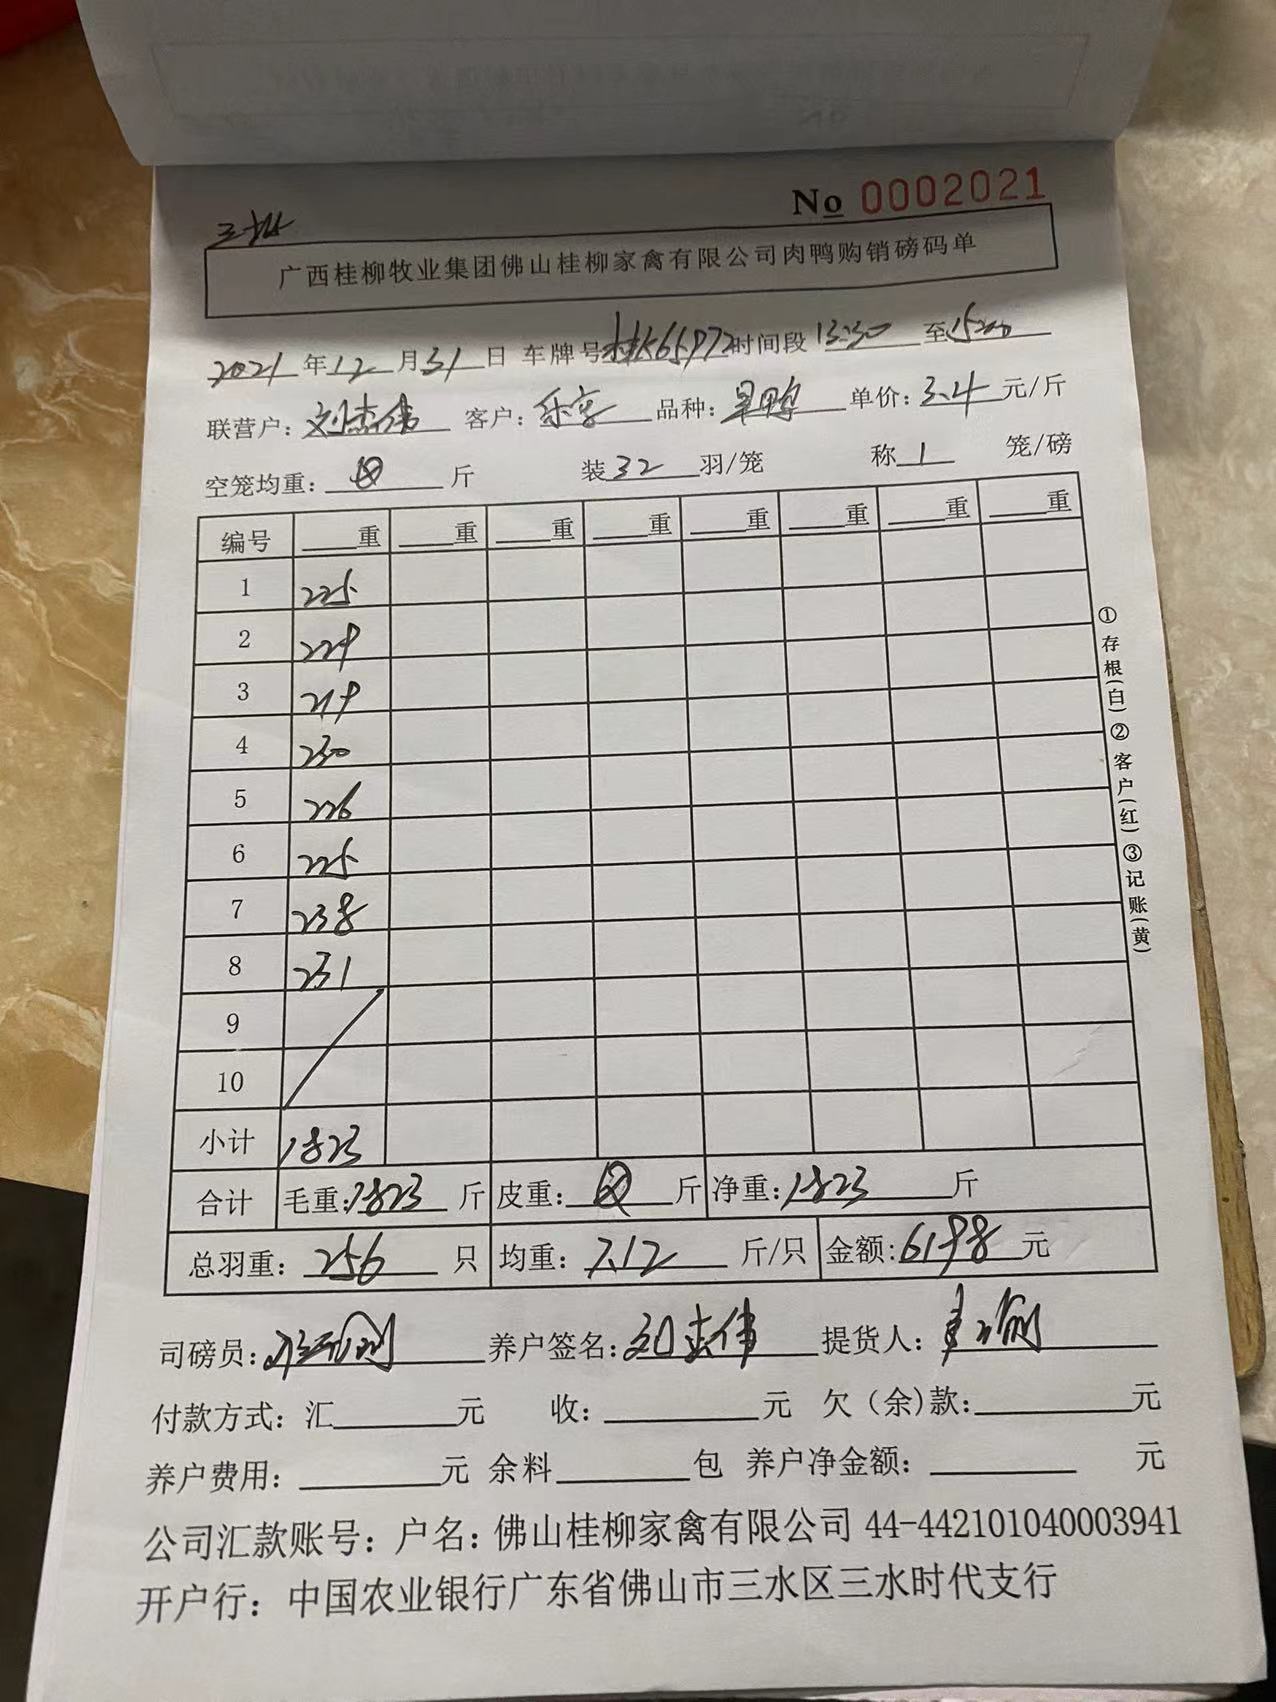 No 0002021
三水
广西桂柳牧业集团佛山桂柳家禽有限公司肉鸭购销磅码单
2021年12月31日 车牌号桂K65972时间段13:30至15:00
联营户：刘志伟 客户：乐宗 品种：旱鸭 单价：3.4元/斤
空笼均重：斤 装32羽/笼 称1笼/磅
编号 重 重 重 重 重 重 重 重
1 225
2 229
3 219
4 230
5 226
6 225
7 238
8 231
9
10
小计 1823
合计 毛重：1823斤 皮重：斤 净重：1823斤
总羽重：256只 均重：7.12斤/只 金额：6198元
司磅员： 养户签名：刘志伟 提货人：
付款方式：汇 元 收： 元 欠（余)款： 元
养户费用： 元 余料 包 养户净金额： 元
公司汇款账号：户名：佛山桂柳家禽有限公司 44-442101040003941
开户行：中国农业银行广东省佛山市三水区三水时代支行
①存根(白)②客户(红)③记账(黄)